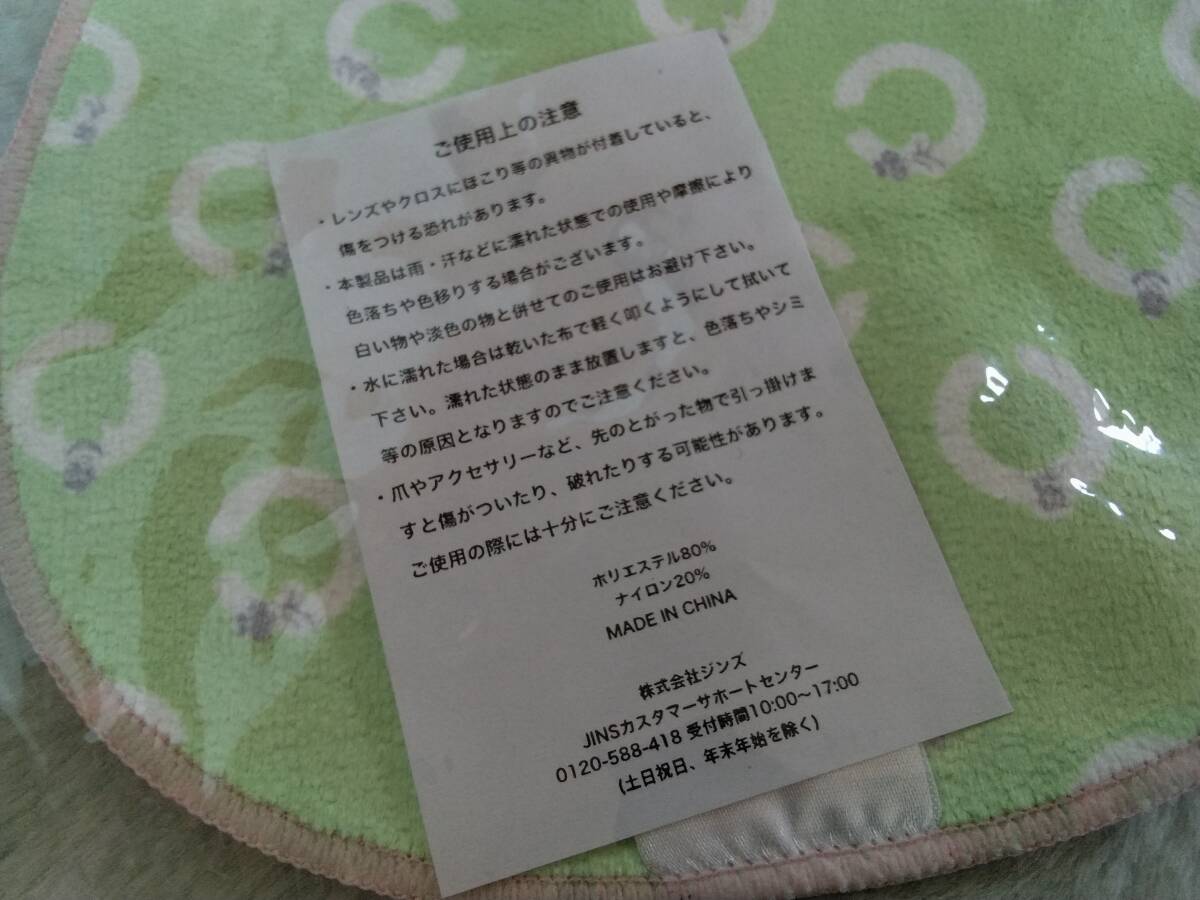 ご使用上の注意
・レンズやクロスにほこり等の異物が付着していると、
傷をつける恐れがあります。
・本製品は雨・汗などに濡れた状態での使用や摩擦により
色落ちや色移りする場合がございます。
白い物や淡色の物と併せてのご使用はお避け下さい。
・水に濡れた場合は乾いた布で軽く叩くようにして拭いて
下さい。濡れた状態のまま放置しますと、色落ちやシミ
等の原因となりますのでご注意ください。
・爪やアクセサリーなど、先のとがった物で引っ掛けま
すと傷がついたり、破れたりする可能性があります。
ご使用の際には十分にご注意ください。
ポリエステル80%
ナイロン20%
MADE IN CHINA
株式会社ジンズ
JINSカスタマーサポートセンター
0120-588-418 受付時間10:00～17:00
(土日祝日、年末年始を除く)